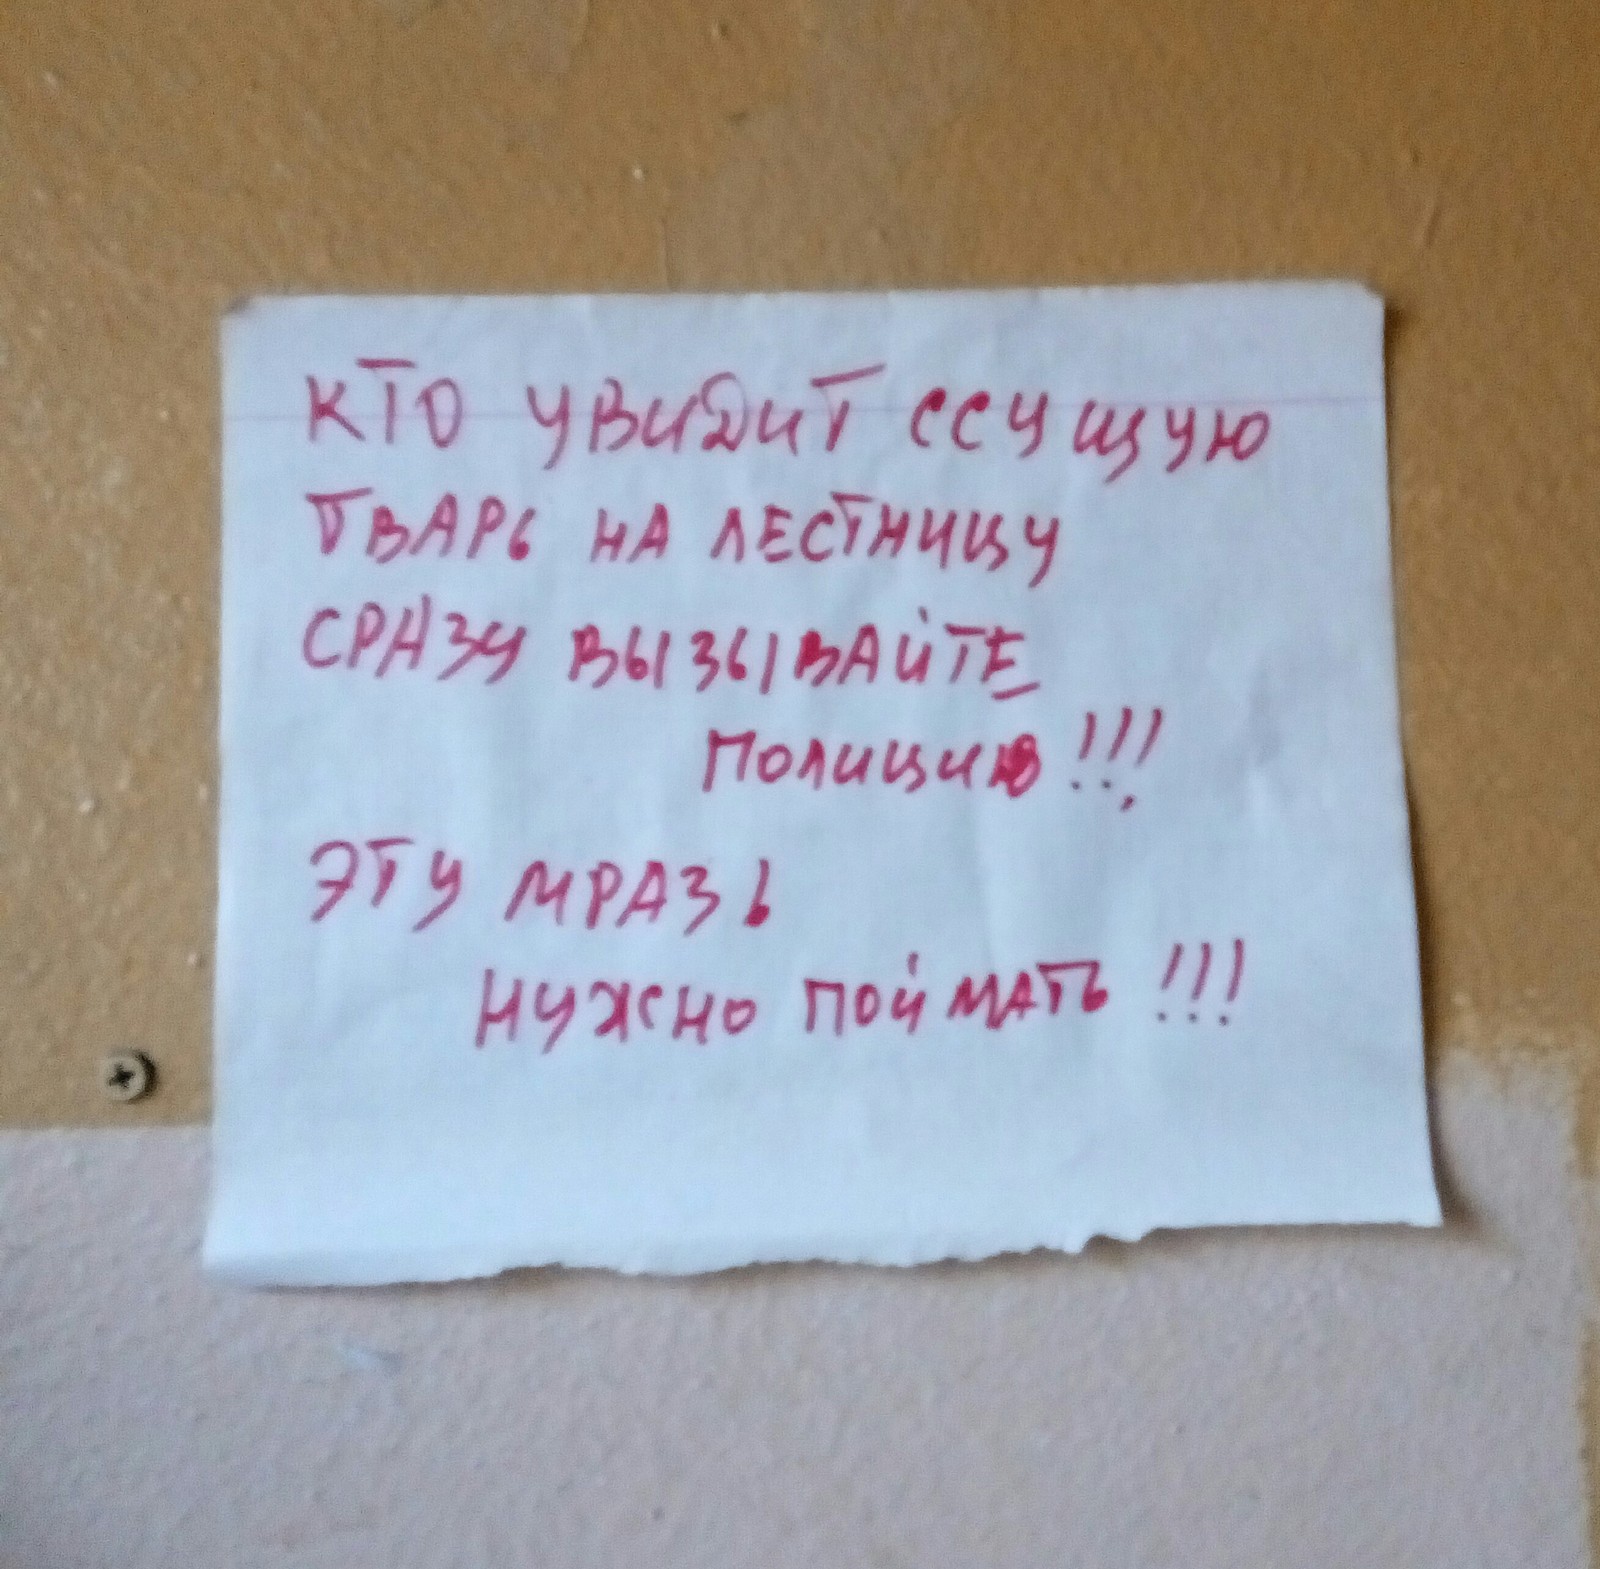 КТО УВИДИТ ССУЩУЮ
ТВАРЬ НА ЛЕСТНИЦУ
СРАЗУ ВЫЗЫВАЙТЕ
ПОЛИЦИЮ !!!
ЭТУ МРАЗЬ
НУЖНО ПОЙМАТЬ !!!